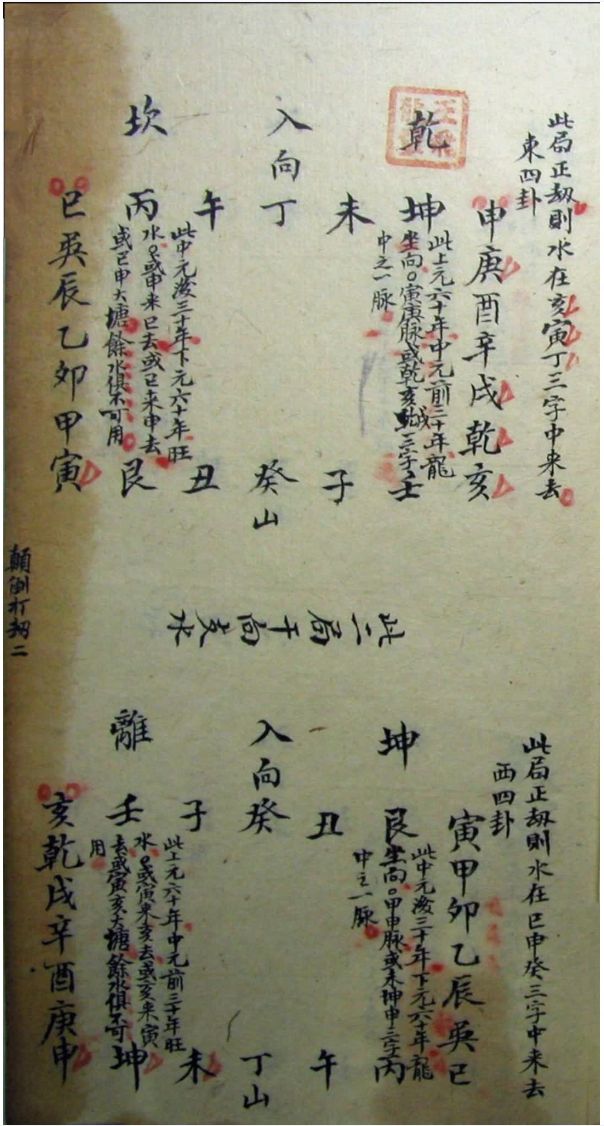 此局正刼則水在亥寅丁三字中来去
東四卦
申庚酉辛戌乾亥
乾
坤
此上元六十年中元前三十年龍
坐向。寅庚脉或乾亥三字
中之一脉
壬
未
子
入向丁
癸山
午
丑
坎
丙
此中元後三十年下元六十年旺
水。或申来巳去或巳来申去
或巳申大塘餘水俱不可用
艮
巳巽辰乙卯甲寅
此二局干向支水
顛倒打刼二
此局正刼則水在巳申癸三字中来去
西四卦
寅甲卯乙辰巽巳
坤
艮
此中元後三十年下元六十年龍
坐向。甲申脉或未坤申三字
中之一脉
丙
丑
午
入向癸
丁山
子
未
離
壬
此上元六十年中元前三十年旺
水。或寅来亥去或亥来寅
去或寅亥大塘餘水俱不可
用
坤
亥乾戌辛酉庚申